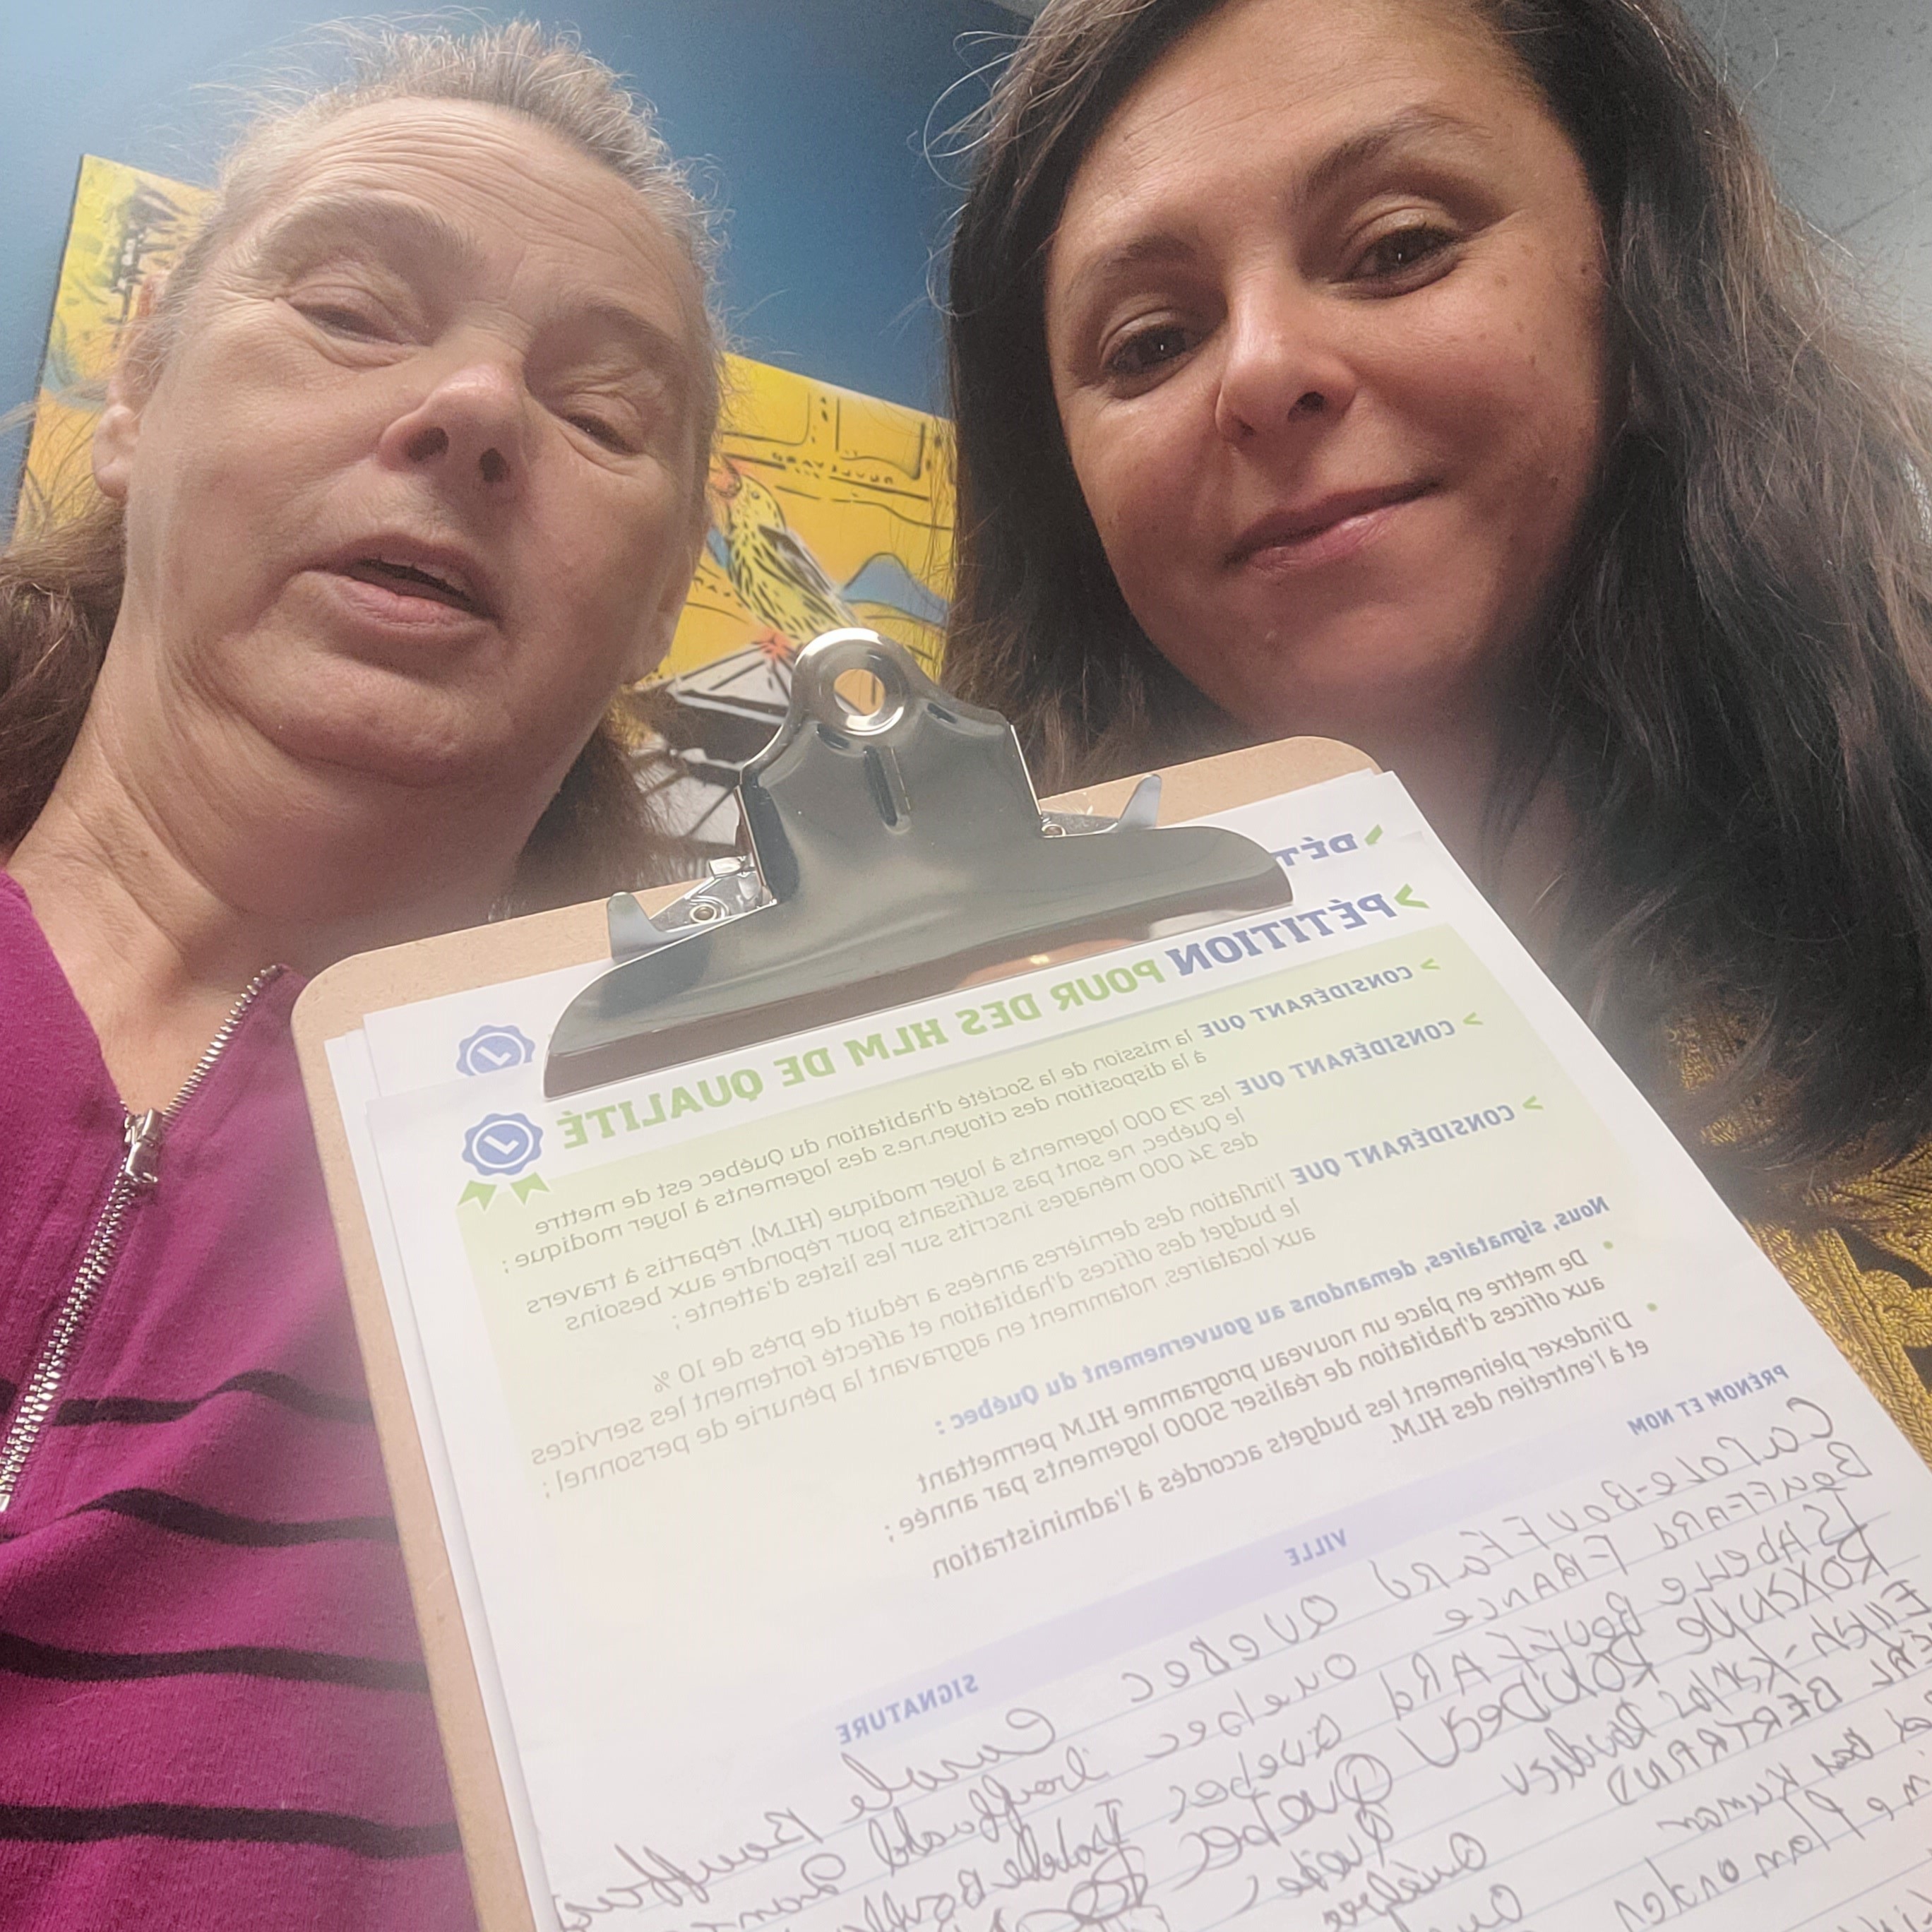 PÉT
PÉTITION POUR DES HLM DE QUALITÉ
CONSIDÉRANT QUE la mission de la Société d'habitation du Québec est de mettre
à la disposition des citoyen.ne.s des logements à loyer modique ;
CONSIDÉRANT QUE les 73 000 logements à loyer modique (HLM), répartis à travers
le Québec, ne sont pas suffisants pour répondre aux besoins
des 34 000 ménages inscrits sur les listes d'attente ;
CONSIDÉRANT QUE l'inflation des dernières années a réduit de près de 10 %
le budget des offices d'habitation et affecté fortement les services
aux locataires, notamment en aggravant la pénurie de personnel ;
Nous, signataires, demandons au gouvernement du Québec :
• De mettre en place un nouveau programme HLM permettant
aux offices d'habitation de réaliser 5000 logements par année ;
• D'indexer pleinement les budgets accordés à l'administration
et à l'entretien des HLM.
PRÉNOM ET NOM VILLE SIGNATURE
Carole-Bouffard Quebec Carole
Bouffard France Quebec Bouffard
Isabelle Bouffard Quebec Isabelle
Roxanne Rondeau Quebec
Beaudieu
Bertrand Québec
Kumar
Plamondon